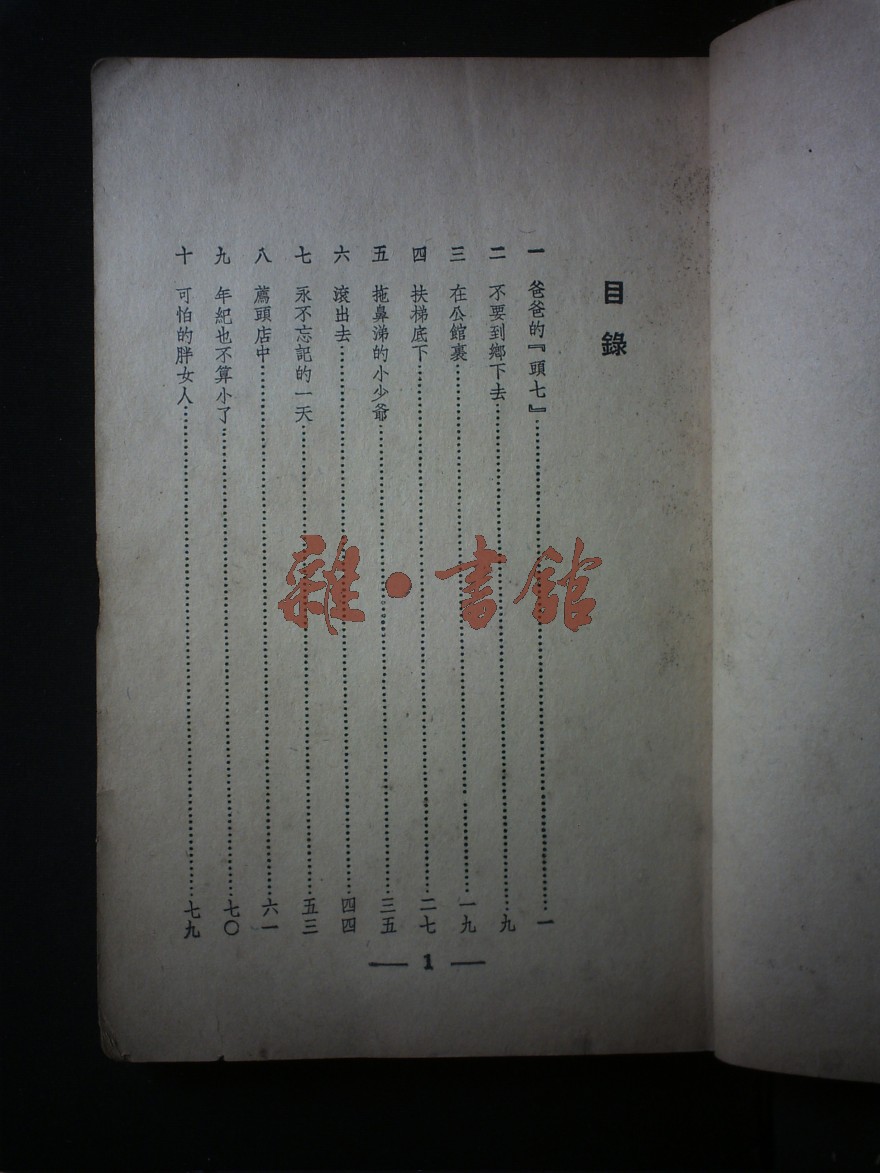 目錄
一 爸爸的『頭七』……一
二 不要到鄉下去……九
三 在公館裏……一九
四 扶梯底下……二七
五 拖鼻涕的小少爺……三五
六 滾出去……四四
七 永不忘記的一天……五三
八 薦頭店中……六一
九 年紀也不算小了……七〇
十 可怕的胖女人……七九
— 1 —
雜·書館